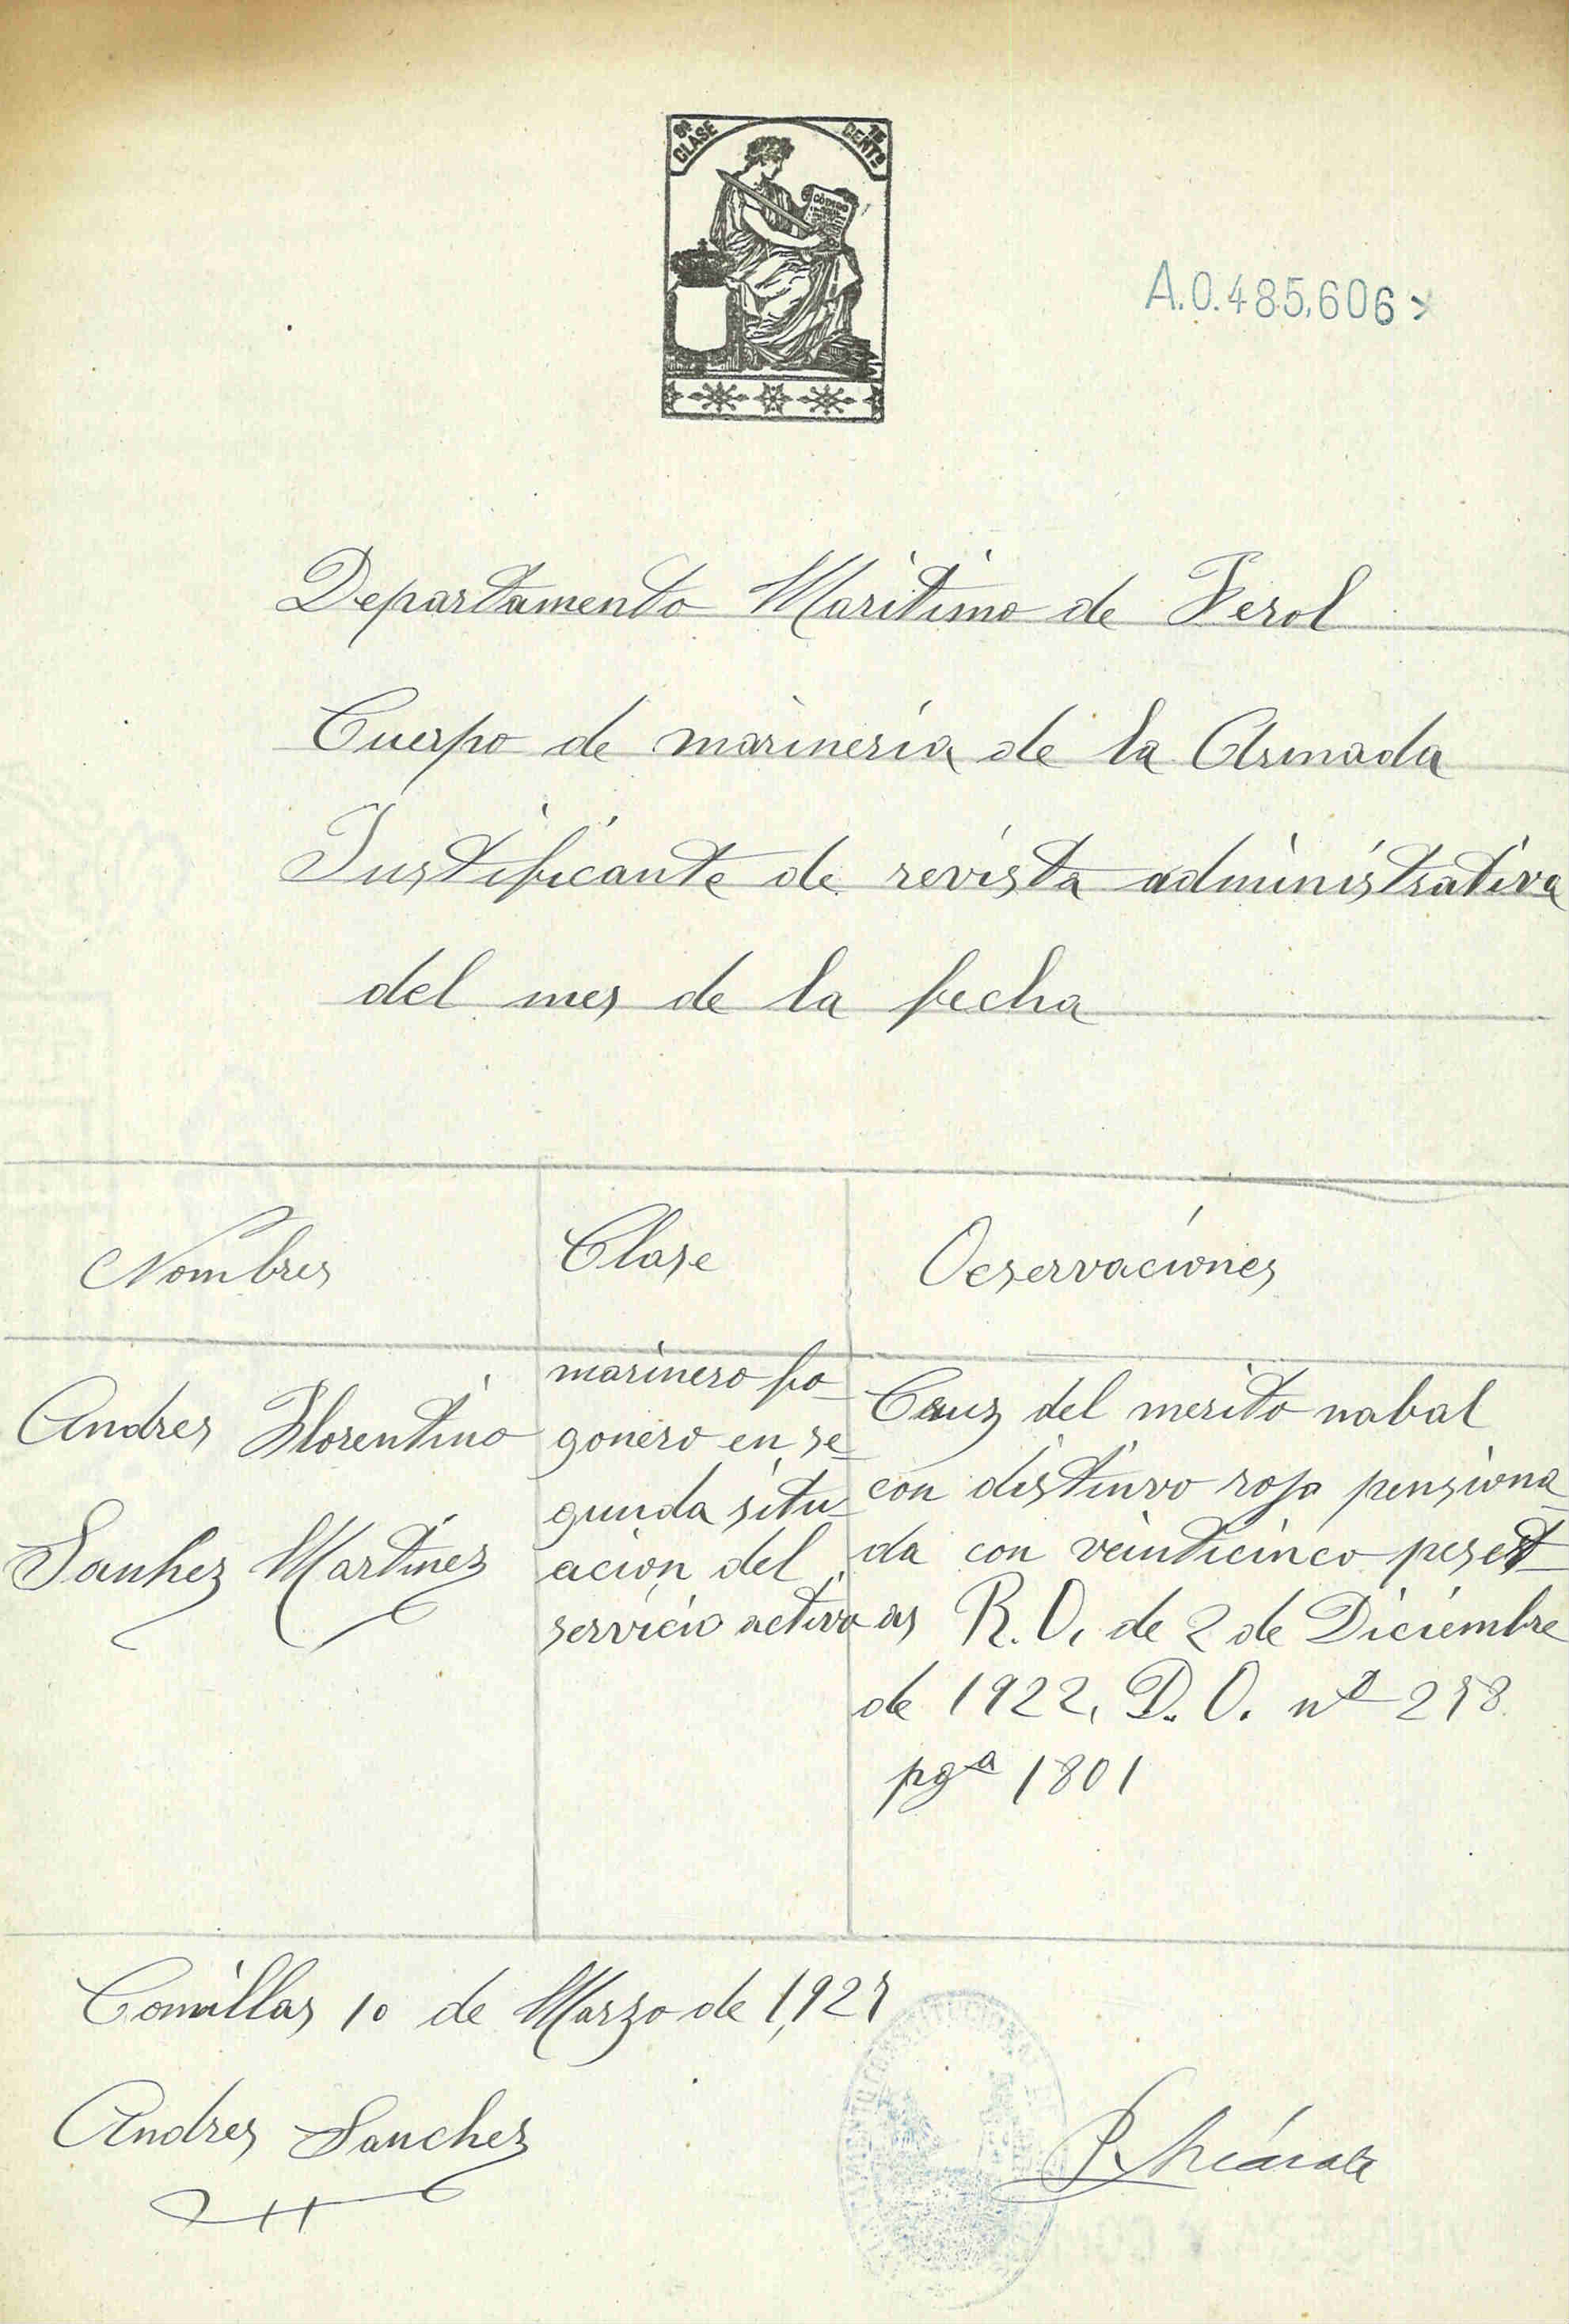 8ª CLASE
15 CENTS
CÓDIGO
A.0.485,606
Departamento Maritimo de Ferol
Cuerpo de marineria de la Armada
Justificante de revista administrativa
del mes de la fecha
Nombres
Clase
Ocservaciones
Andres Florentino
Sanhez Martinez
marinero fo-
gonero en se-
gunda situ-
acion del
servicio activo
Cruz del merito nabal
con distinvo rojo pensiona-
da con veinticinco peset-
as R.O. de 2 de Diciembre
de 1922, D.O. nº
pgª 1801
Comillas 10 de Marzo de
Andres Sanchez